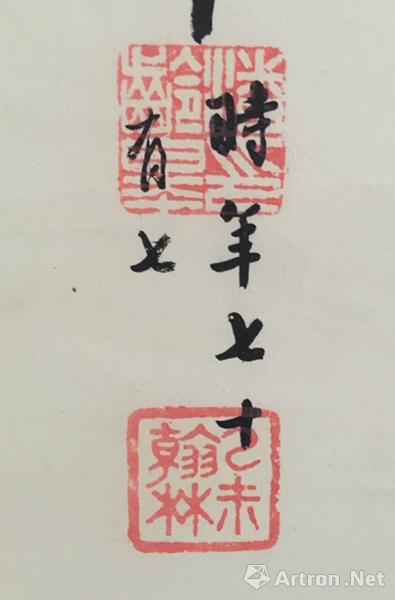 時年七十
有七
乙未
翰林
Artron.Net